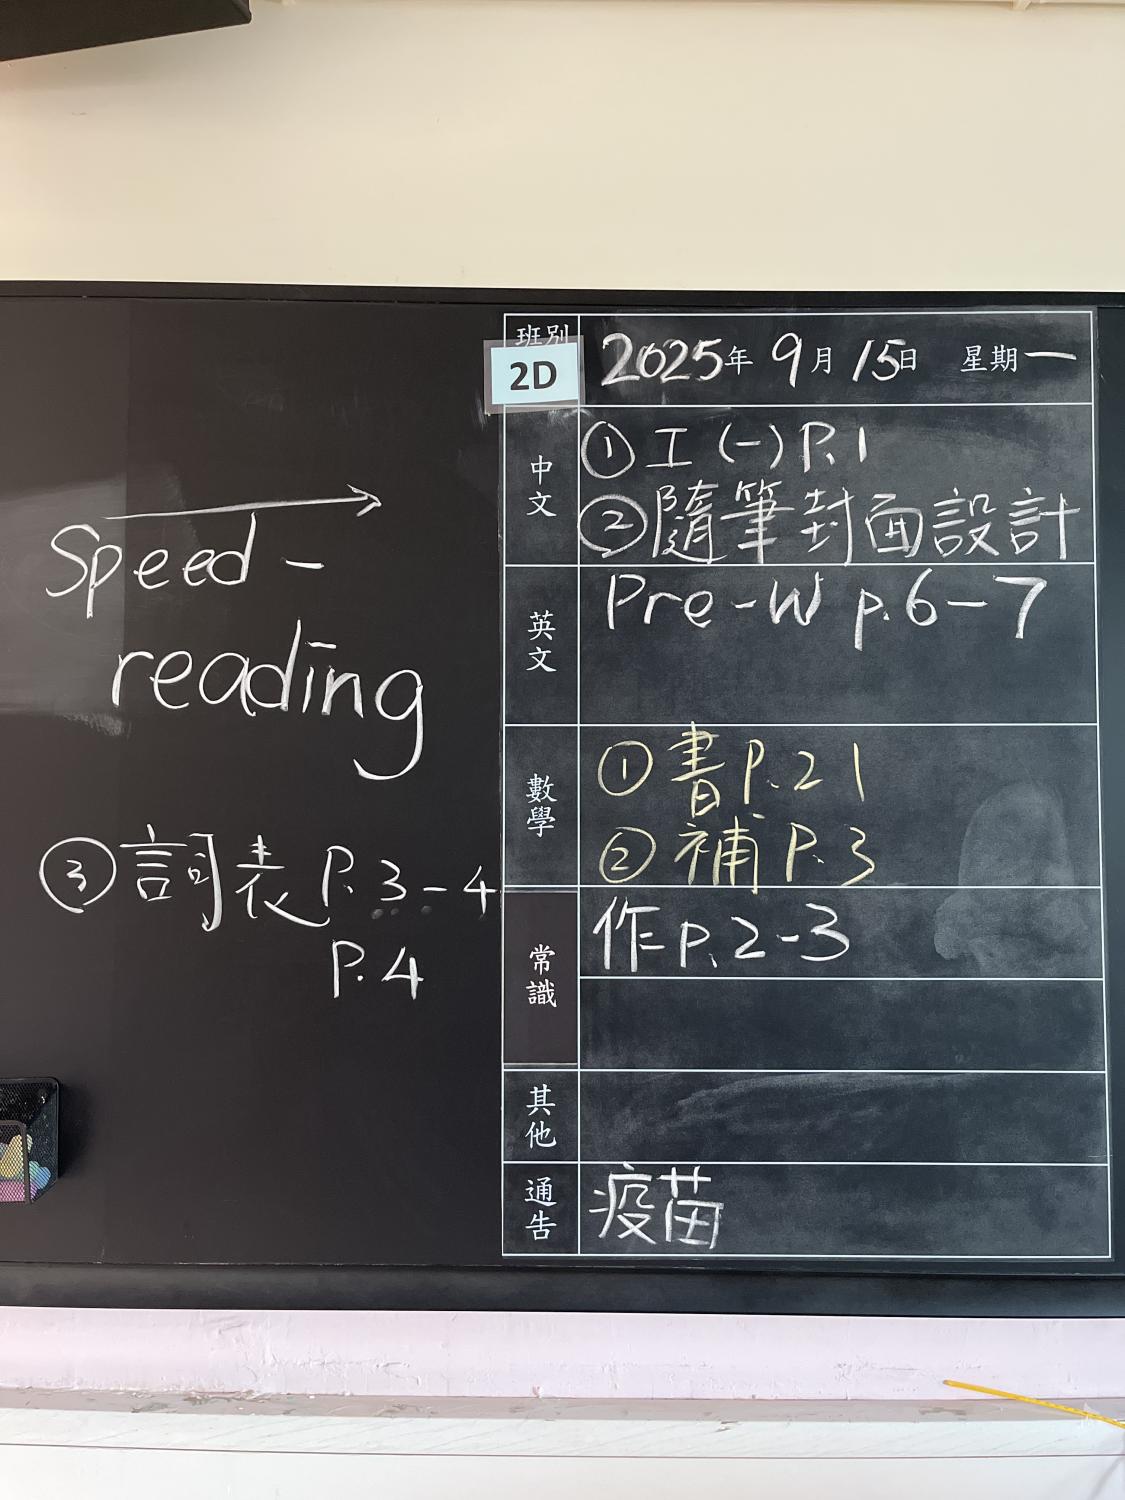 班別
2D
2025年 9月 15日 星期一
中文
① 工(一) P.1
② 隨筆封面設計
③ 詞表 P.3-4
P.4
英文
Pre-W p.6-7
Speed-
reading
數學
① 書 P.21
② 補 P.3
常識
作 P.2-3
其他
通告
疫苗